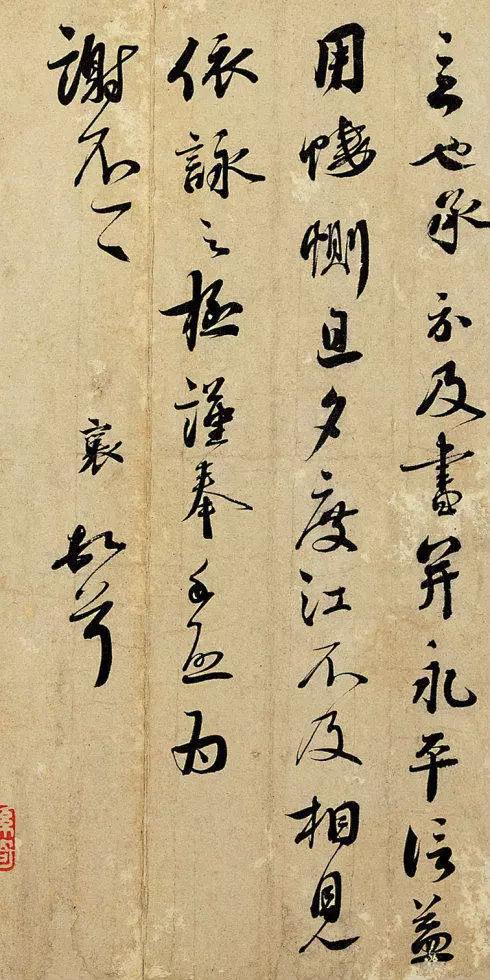 言也承示及書并永平信益
用悽惻旦夕度江不及相見
依詠之極謹奉手啟為
謝不一一 襄 頓首